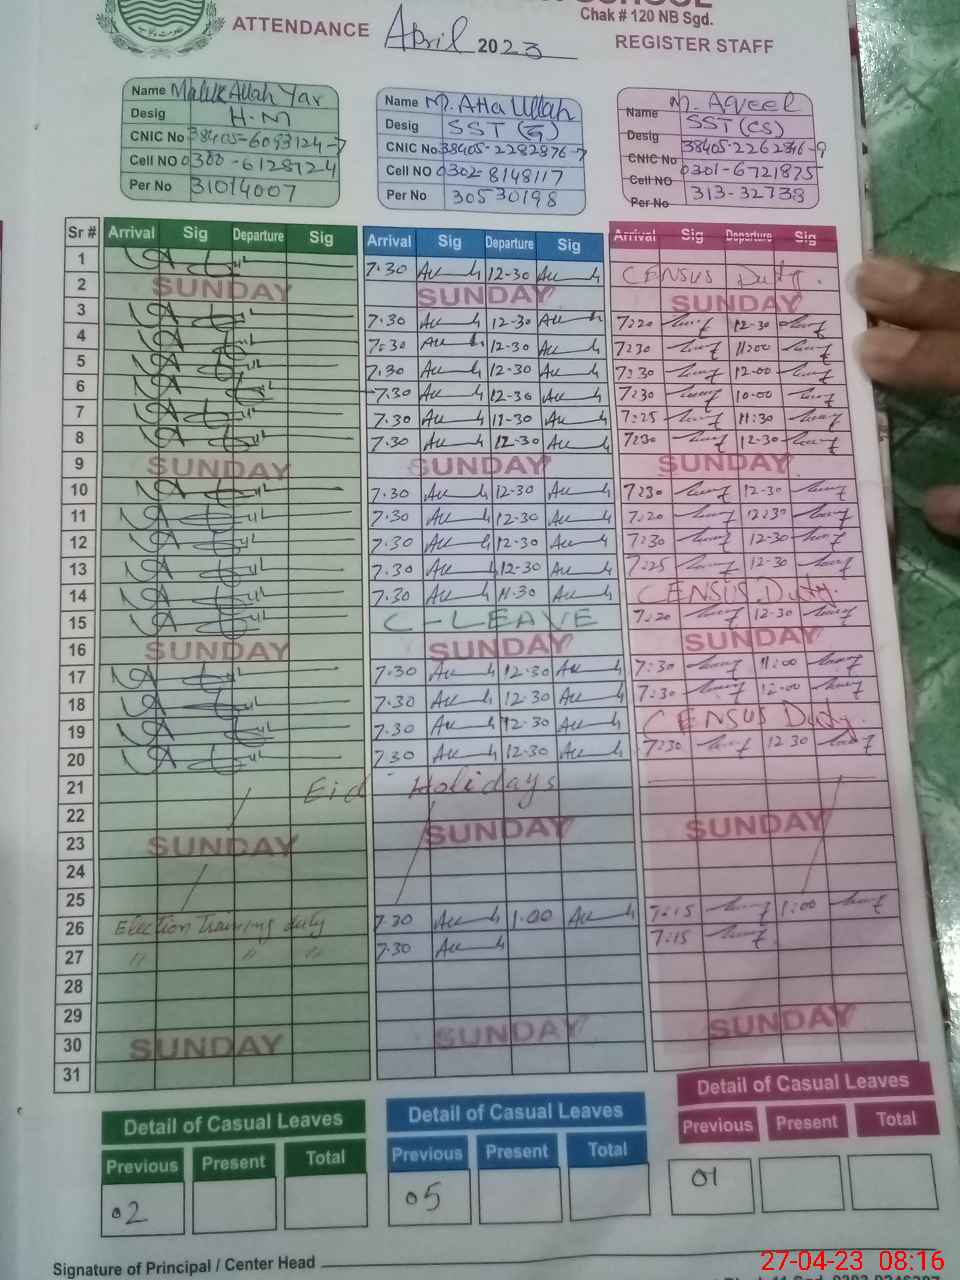 Chak # 120 NB Sgd.
ATTENDANCE April 2023 REGISTER STAFF
Name Malik Allah Yar
Desig H.M
CNIC No 38405-6093124-7
Cell NO 0300-6128724
Per No 31014007
Name M. Atta Ullah
Desig SST (G)
CNIC No 38405-2282876-7
Cell NO 0302-8148117
Per No 30530198
Name M. Aqeel
Desig SST (CS)
CNIC No 38405-2262846-9
Cell NO 0301-6721875
Per No 313-32738
Sr # Arrival Sig Departure Sig Arrival Sig Departure Sig Arrival Sig Departure Sig
1 7.30 12-30 CENSUS Duty.
2 SUNDAY SUNDAY SUNDAY
3 7.30 12-30 7:20 12-30
4 7:30 12-30 7:30 11:00
5 7.30 12-30 7:30 12-00
6 7.30 12-30 7:30 10-00
7 7.30 11-30 7:25 11:30
8 7.30 12-30 7:30 12-30
9 SUNDAY SUNDAY SUNDAY
10 7.30 12-30 7:30 12-30
11 7.30 12-30 7:20 12:30
12 7.30 12-30 7:30 12-30
13 7.30 12-30 7:25 12-30
14 7.30 11-30 CENSUS Duty.
15 C-LEAVE 7:20 12-30
16 SUNDAY SUNDAY SUNDAY
17 7.30 12-30 7:30 11:00
18 7.30 12-30 7:30 12-00
19 7.30 12-30 CENSUS Duty.
20 7.30 12-30 7:30 12 30
21 Eid Holidays
22
23 SUNDAY SUNDAY SUNDAY
24
25
26 Election Training duty 7.30 1.00 7:15 1:00
27 " " " 7.30 7:15
28
29
30 SUNDAY SUNDAY SUNDAY
31
Detail of Casual Leaves Detail of Casual Leaves Detail of Casual Leaves
Previous Present Total Previous Present Total Previous Present Total
02 05 01
Signature of Principal / Center Head
27-04-23 08:16